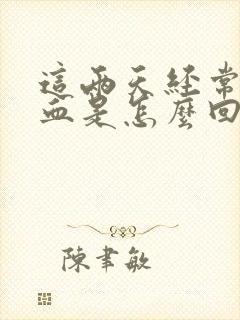 這兩天經常
血是怎麼回
陳聿敏